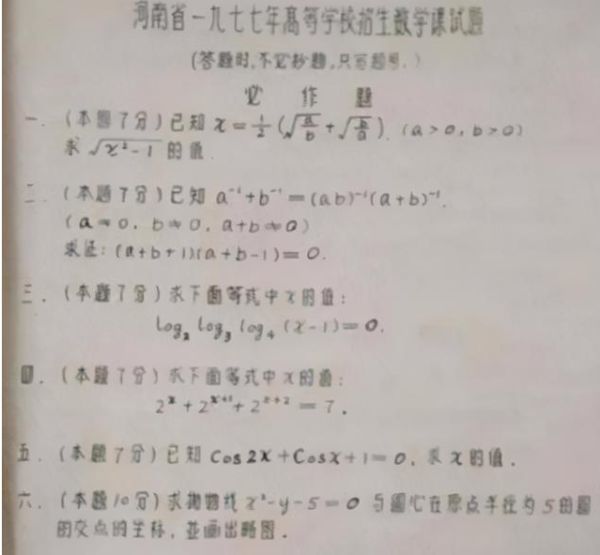 河南省一九七七年高等学校招生数学课试题
(答题时,不必抄题,只写题号.)
必 作 题
一. (本题7分) 已知 x=1/2(√(a/b)+√(b/a)). (a>0, b>0)
求 √(x²-1) 的值.
二. (本题7分) 已知 a⁻¹+b⁻¹=(ab)⁻¹(a+b)⁻¹.
(a≠0, b≠0, a+b≠0)
求证: (a+b+1)(a+b-1)=0.
三. (本题7分) 求下面等式中x的值:
log₂ log₃ log₄ (x-1)=0.
四. (本题7分) 求下面等式中x的值:
2ˣ+2ˣ⁺¹+2ˣ⁺²=7.
五. (本题7分) 已知 Cos2x+Cosx+1=0, 求x的值.
六. (本题10分) 求抛物线 x²-y-5=0 与圆心在原点半径为5的圆
的交点的坐标, 并画出略图.